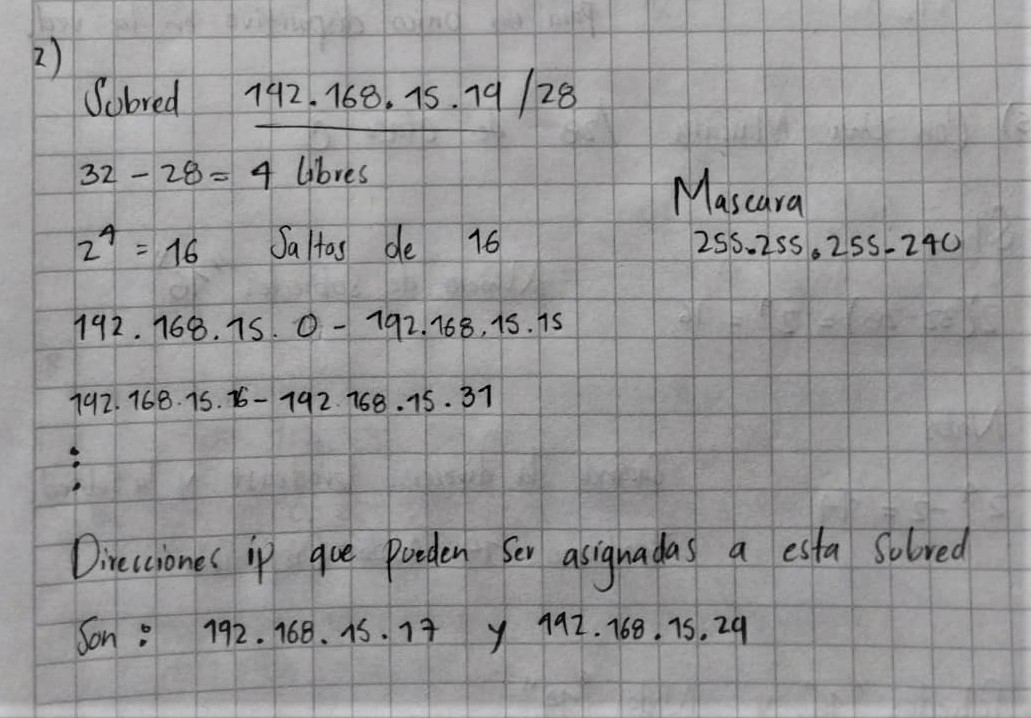 2)
Subred 192.168.15.19 /28
32 - 28 = 4 libres
Mascara
2⁴ = 16 Saltos de 16
255.255.255.240
192.168.15.0 - 192.168.15.15
192.168.15.16 - 192.168.15.31
⋮
Direcciones ip que pueden ser asignadas a esta subred
son: 192.168.15.17 y 192.168.15.29